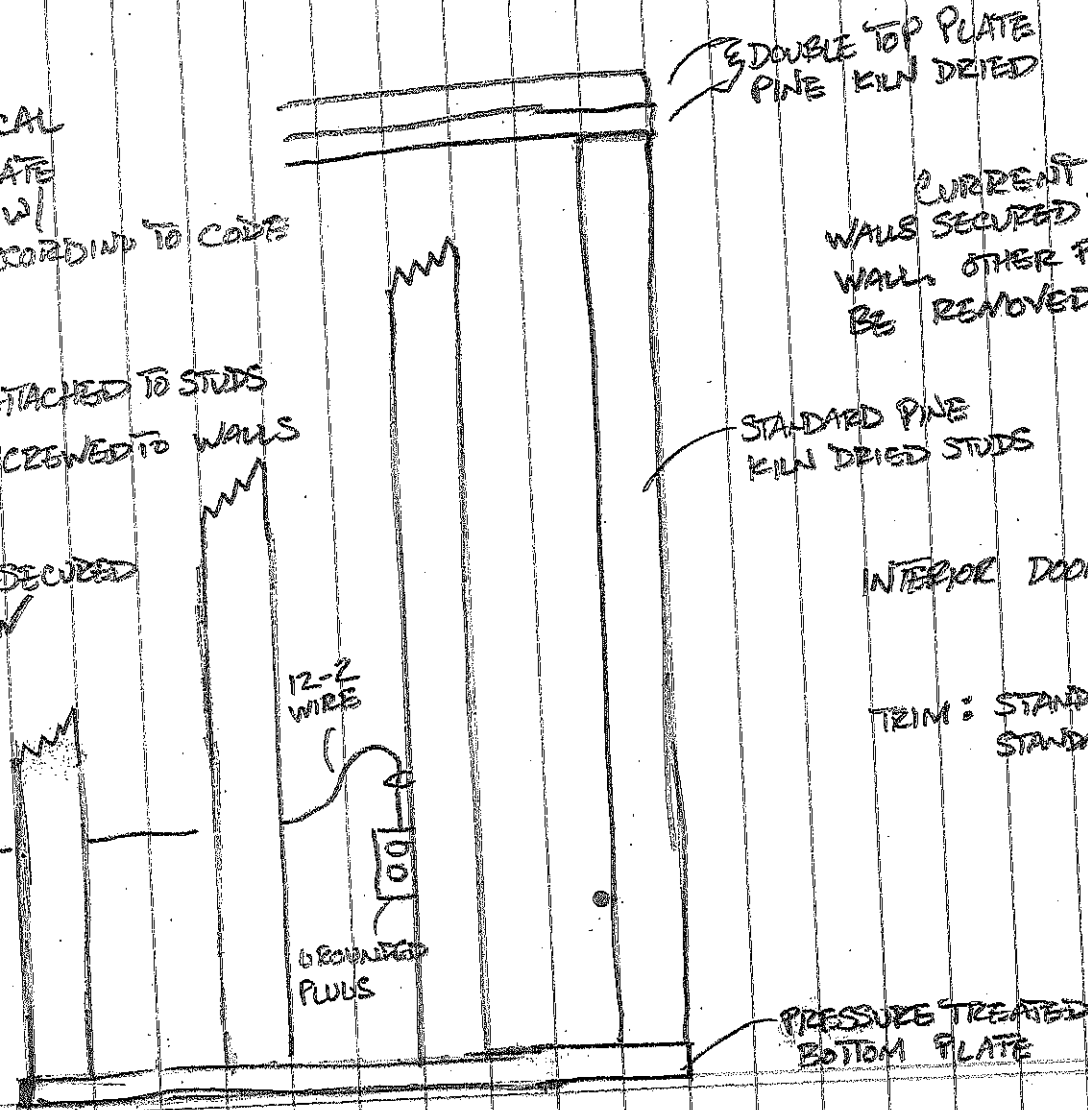 DOUBLE TOP PLATE
PINE KILN DRIED
CAL
ATE
W/
CCORDING TO CODE
CURRENT
WALLS SECURED
WALL. OTHER F
BE REMOVED
TTACHED TO STUDS
CREWED TO WALLS
STANDARD PINE
KILN DRIED STUDS
SECURED
INTERIOR DOO
12-2
WIRE
TRIM: STAND
STANDA
GROUNTED
PLUGS
PRESSURE TREATED
BOTTOM PLATE